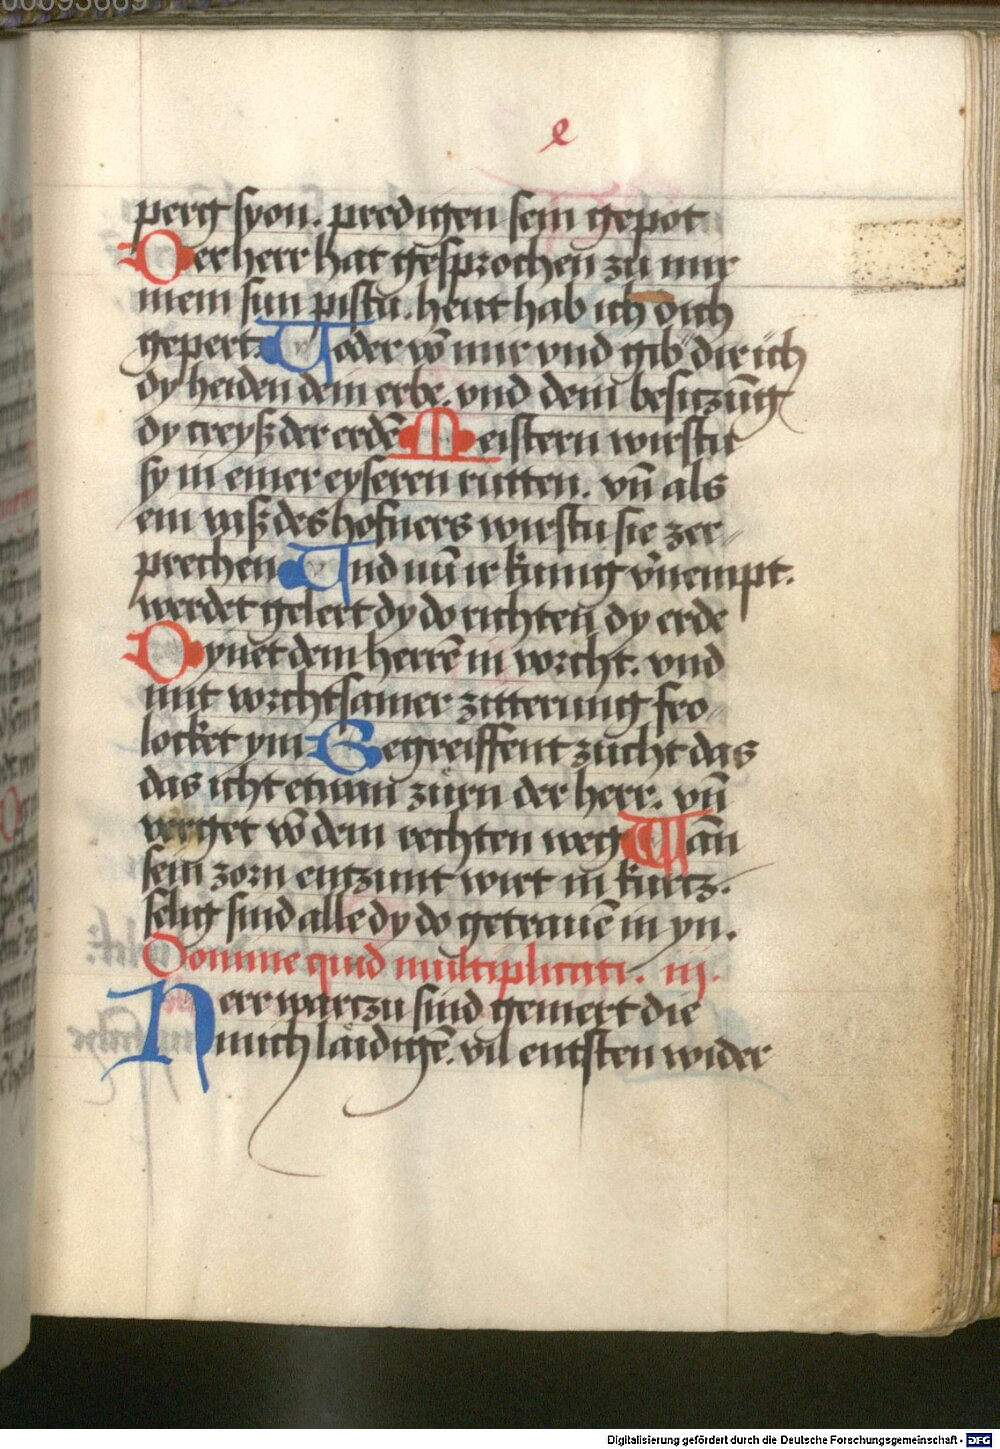 00093669
e
perg syon. predigen sein gepot
Der herr hat gesprochen zu mir
mein sun pistu. heut hab ich dich
gepert. Voder vō mir vnd gib dir ich
dy heiden dein erbe. vnd dein besitzūg
dy creyß der erdē Meistern wirstu
sy in einer eyseren rutten. vn̄ als
ein vaß des hofners wirstu sie zer⸗
prechen Vnd nū ir kunig v̄nempt.
werdet gelert dy do richten dy erde
Dynet dem herrē in vorcht. vnd
mit vorchtsamer zitterung fro⸗
locket ym Begreiffent zucht das
das icht etwan zürn der herr. vn̄
verget vō dem rechten weg Wān
sein zorn entzunt wirt in kurtz.
selig sind alle dy do getrauē in yn.
Domine quid multiplicati. iij.
Herr wartzu sind gemert die
mich laidigē. vil entsten wider
Digitalisierung gefördert durch die Deutsche Forschungsgemeinschaft - DFG